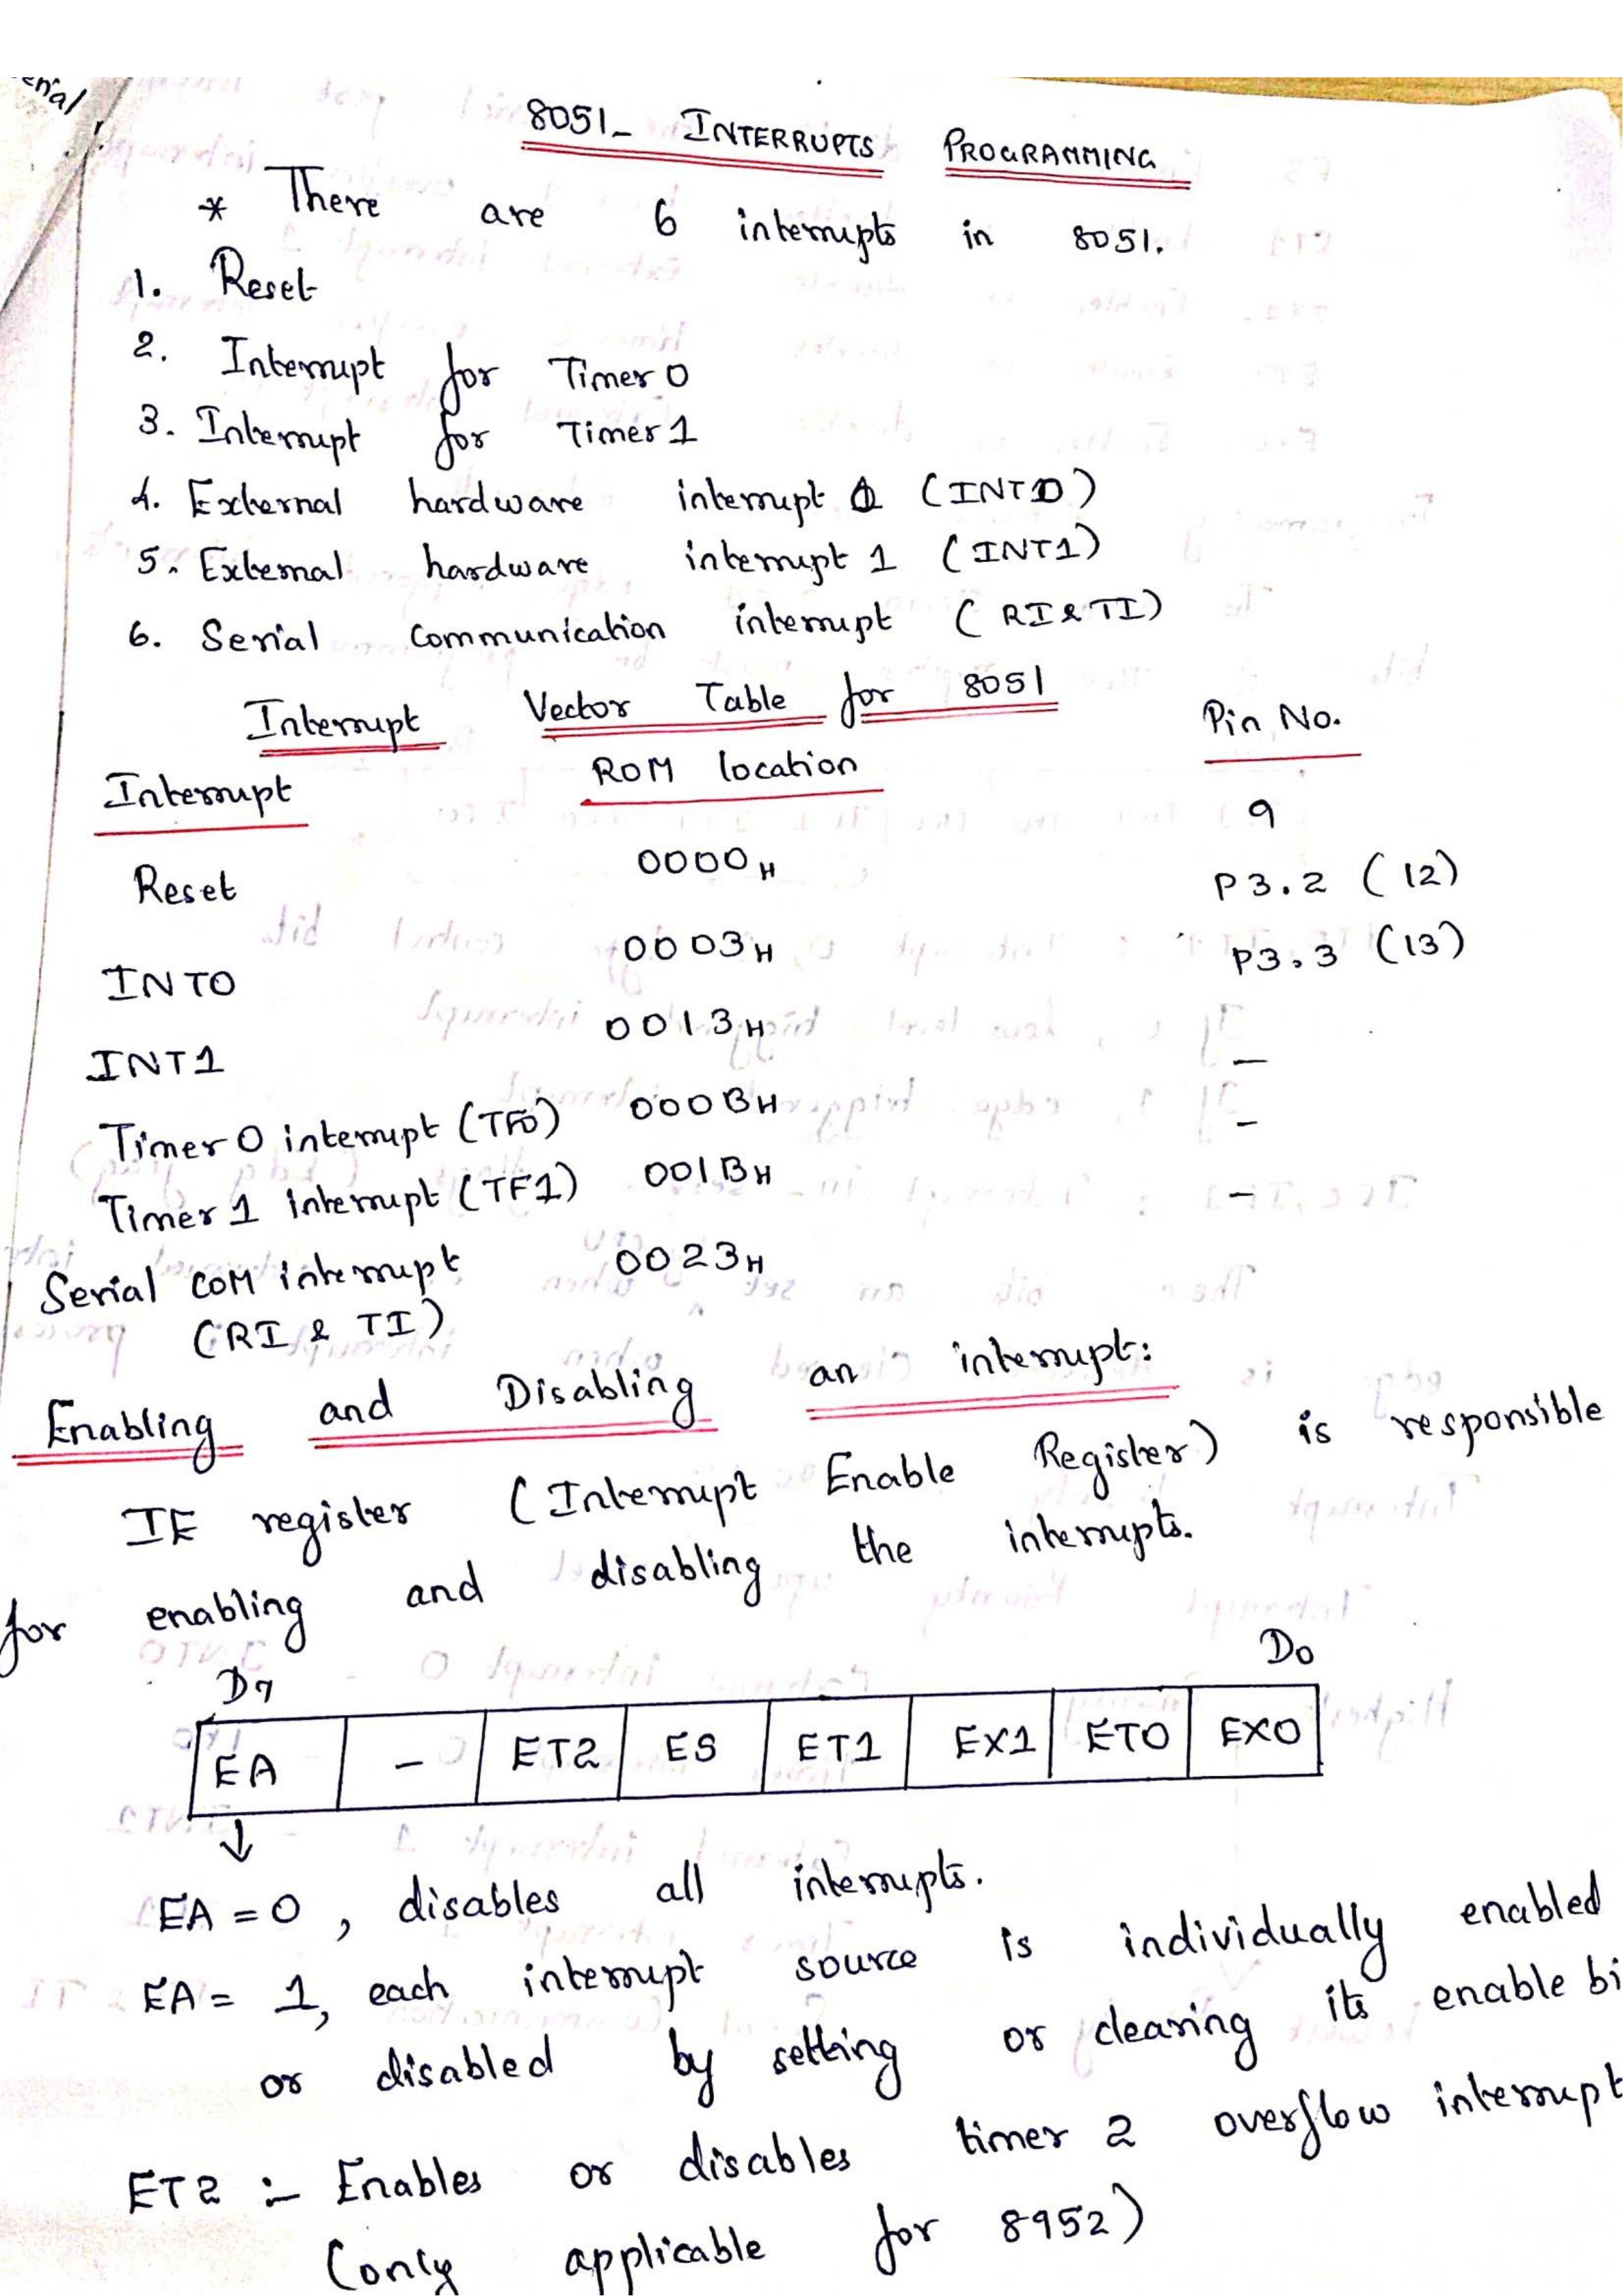 enal
8051- INTERRUPTS PROGRAMMING
* There are 6 interrupts in 8051.
1. Reset
2. Interrupt for Timer 0
3. Interrupt for Timer 1
4. External hardware interrupt 0 (INT0)
5. External hardware interrupt 1 (INT1)
6. Serial Communication interrupt (RI & TI)
Interrupt Vector Table for 8051
Interrupt ROM location Pin No.
Reset 0000H 9
INT0 0003H P3.2 (12)
INT1 0013H P3.3 (13)
Timer 0 interrupt (TF0) 000BH –
Timer 1 interrupt (TF1) 001BH –
Serial COM interrupt 0023H –
(RI & TI)
Enabling and Disabling an interrupt:
IE register (Interrupt Enable Register) is responsible
for enabling and disabling the interrupts.
D7 D0
EA – ET2 ES ET1 EX1 ET0 EX0
↓
EA = 0, disables all interrupts.
EA = 1, each interrupt source is individually enabled
or disabled by setting or clearing its enable bi
ET2 :- Enables or disables timer 2 overflow interrupt
(only applicable for 8952)